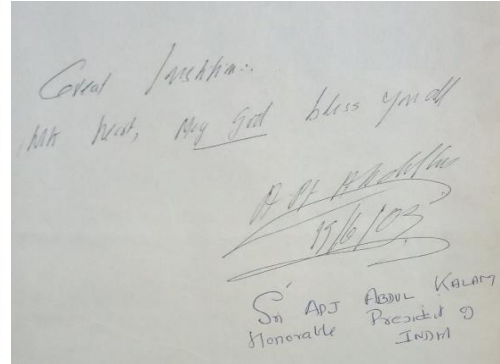 Great
heart, May God bless you all
15/6/03
Sri APJ ABDUL KALAM
Honorable President of
INDIA